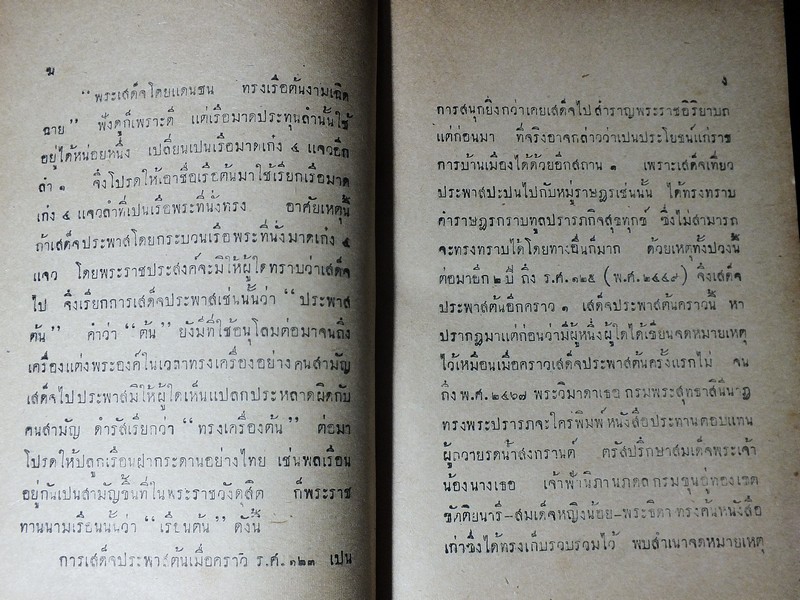 ฆ
“พระเสด็จโดยแดนชน ทรงเรือต้นงามเฉิด
ฉาย” ฟังดูก็เพราะดี แต่เรือมาดประทุนลำนั้นใช้
อยู่ได้หน่อยหนึ่ง เปลี่ยนเป็นเรือมาดเก๋ง ๔ แจวอีก
ลำ ๑ จึงโปรดให้เอาชื่อเรือต้นมาใช้เรียกเรือมาด
เก๋ง ๔ แจวลำที่เป็นเรือพระที่นั่งทรง อาศัยเหตุนี้
ถ้าเสด็จประพาสโดยกระบวนเรือพระที่นั่งมาดเก๋ง ๔
แจว โดยพระราชประสงค์จะมิให้ผู้ใดทราบว่าเสด็จ
ไป จึงเรียกการเสด็จประพาสเช่นนั้นว่า “ประพาส
ต้น” คำว่า “ต้น” ยังมีที่ใช้อนุโลมต่อมาจนถึง
เครื่องแต่งพระองค์ในเวลาทรงเครื่องอย่างคนสามัญ
เสด็จไปประพาสมิให้ผู้ใดเห็นแปลกประหลาดผิดกับ
คนสามัญ ดำรัสเรียกว่า “ทรงเครื่องต้น” ต่อมา
โปรดให้ปลูกเรือนฝากระดานอย่างไทย เช่นพลเรือน
อยู่กันเป็นสามัญขึ้นที่ในพระราชวังดุสิต ก็พระราช
ทานนามเรือนนั้นว่า “เรือนต้น” ดังนี้
การเสด็จประพาสต้นเมื่อคราว ร.ศ. ๑๒๓ เป็น
ง
การสนุกยิ่งกว่าเคยเสด็จไปสำราญพระราชอิริยาบถ
แต่ก่อนมา ที่จริงอาจกล่าวว่าเป็นประโยชน์แก่ราช
การบ้านเมืองได้ด้วยอีกสถาน ๑ เพราะเสด็จเที่ยว
ประพาสปะปนไปกับหมู่ราษฎรเช่นนั้น ได้ทรงทราบ
คำราษฎรกราบทูลปรารภกิจสุขทุกข์ ซึ่งไม่สามารถ
จะทรงทราบได้โดยทางอื่นก็มาก ด้วยเหตุทั้งปวงนี้
ต่อมาอีก ๒ ปี ถึง ร.ศ. ๑๒๕ (พ.ศ. ๒๔๔๙) จึงเสด็จ
ประพาสต้นอีกคราว ๑ เสด็จประพาสต้นคราวนี้ หา
ปรากฏมาแต่ก่อนว่ามีผู้หนึ่งผู้ใดได้เขียนจดหมายเหตุ
ไว้เหมือนเมื่อคราวเสด็จประพาสต้นครั้งแรกไม่ จน
ถึง พ.ศ. ๒๔๖๗ พระวิมาดาเธอ กรมพระสุทธาสินีนาฏ
ทรงพระปรารภจะใคร่พิมพ์หนังสือประทานตอบแทน
ผู้ถวายรดน้ำสงกรานต์ ตรัสปรึกษาสมเด็จพระเจ้า
น้องนางเธอ เจ้าฟ้านิภานภดล กรมขุนอู่ทองเขต
ขัตติยนารี–สมเด็จหญิงน้อย–พระธิดา ทรงค้นหนังสือ
เก่าซึ่งได้ทรงเก็บรวบรวมไว้ พบสำเนาจดหมายเหตุ